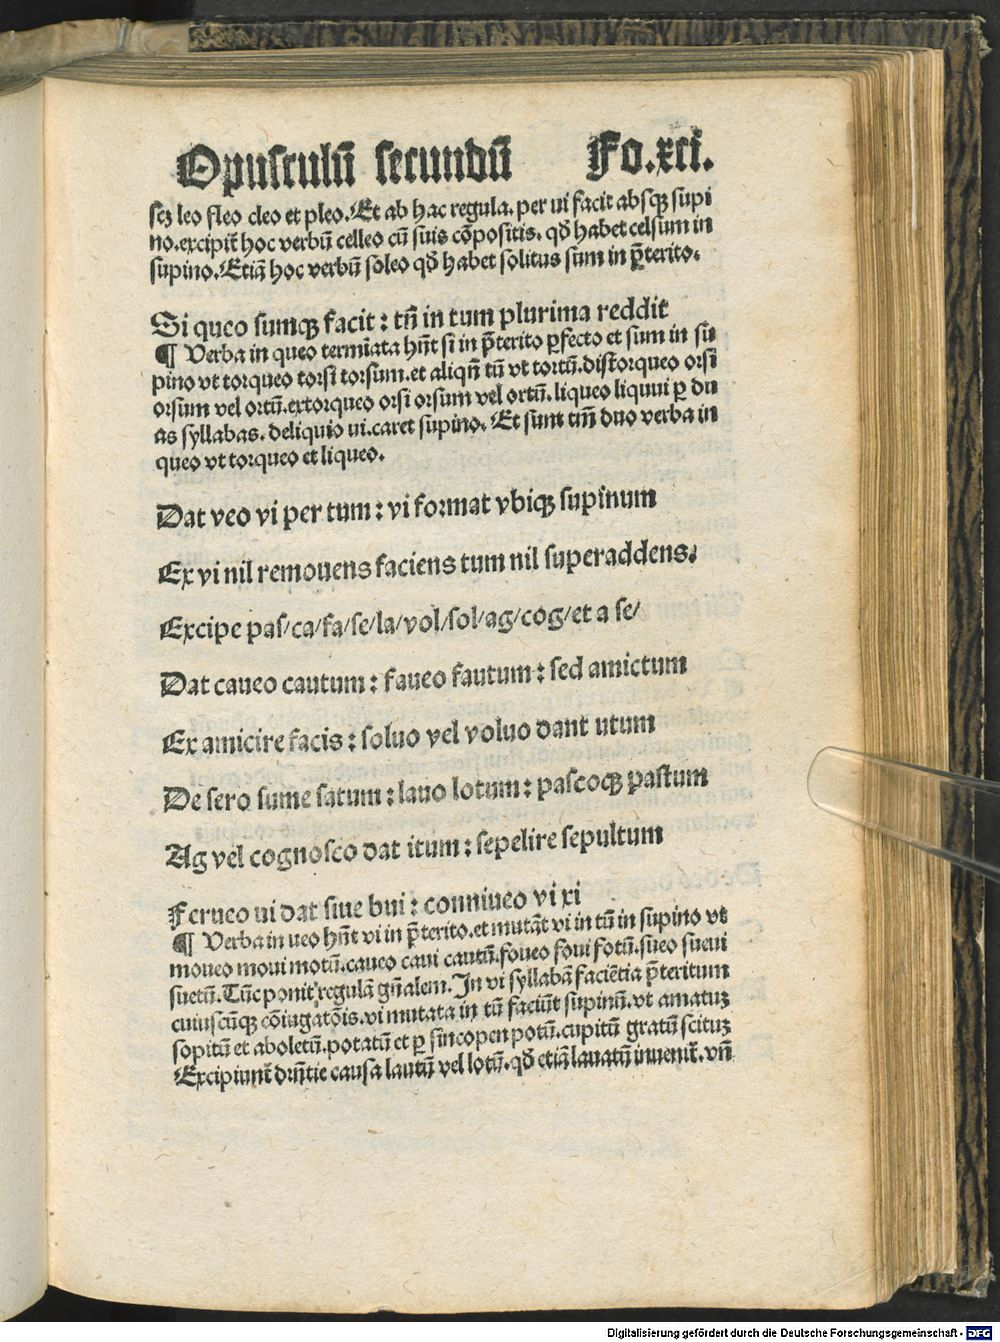 Opusculū secundū Fo.xci.
scꝫ leo fleo cleo et pleo. Et ab hac regula. per ui facit absqꝫ supi
no. excipit̄ hoc verbū celleo cū suis cōpositis. qđ habet celsum in
supino. Etiā hoc verbū soleo qđ habet solitus sum in p̄terito.
Si queo sumqꝫ facit : tn̄ in tum plurima reddit
¶ Verba in queo termīata hn̄t si in p̄terito ꝑfecto et sum in su
pino vt torqueo torsi torsum. et aliqn̄ tū vt tortū. distorqueo orsi
orsum vel ortū. extorqueo orsi orsum vel ortū. liqueo liqui ꝑ du
as syllabas. deliquio ui. caret supino. Et sunt tm̄ duo verba in
queo vt torqueo et liqueo.
Dat veo vi per tum : vi format vbiqꝫ supinum
Ex vi nil remouens faciens tum nil superaddens.
Excipe pas/ca/fa/se/la/vol/sol/ag/cog/et a se/
Dat caueo cautum : faueo fautum : sed amictum
Ex amicire facis : soluo vel voluo dant utum
De sero sume satum : lauo lotum : pascoqꝫ pastum
Ag vel cognosco dat itum : sepelire sepultum
Ferueo ui dat siue bui : conniueo vi xi
¶ Verba in ueo hn̄t vi in p̄terito. et mutāt vi in tū in supino vt
moueo moui motū. caueo caui cautū. foueo foui fotū. sueo sueui
suetū. Tūc ponit᷑ regulā gn̄alem. In vi syllabā faciētia p̄teritum
cuiuscūqꝫ cōiugatōis. vi mutata in tū faciūt supinū. vt amatuꝫ
sopitū et aboletū. potatū et ꝑ sincopen potū. cupitū gratū scituꝫ
Excipiunt̄ dr̄ntie causa lautū vel lotū. qđ etiā lauatū inuenit̄. vn̄
Digitalisierung gefördert durch die Deutsche Forschungsgemeinschaft - DFG